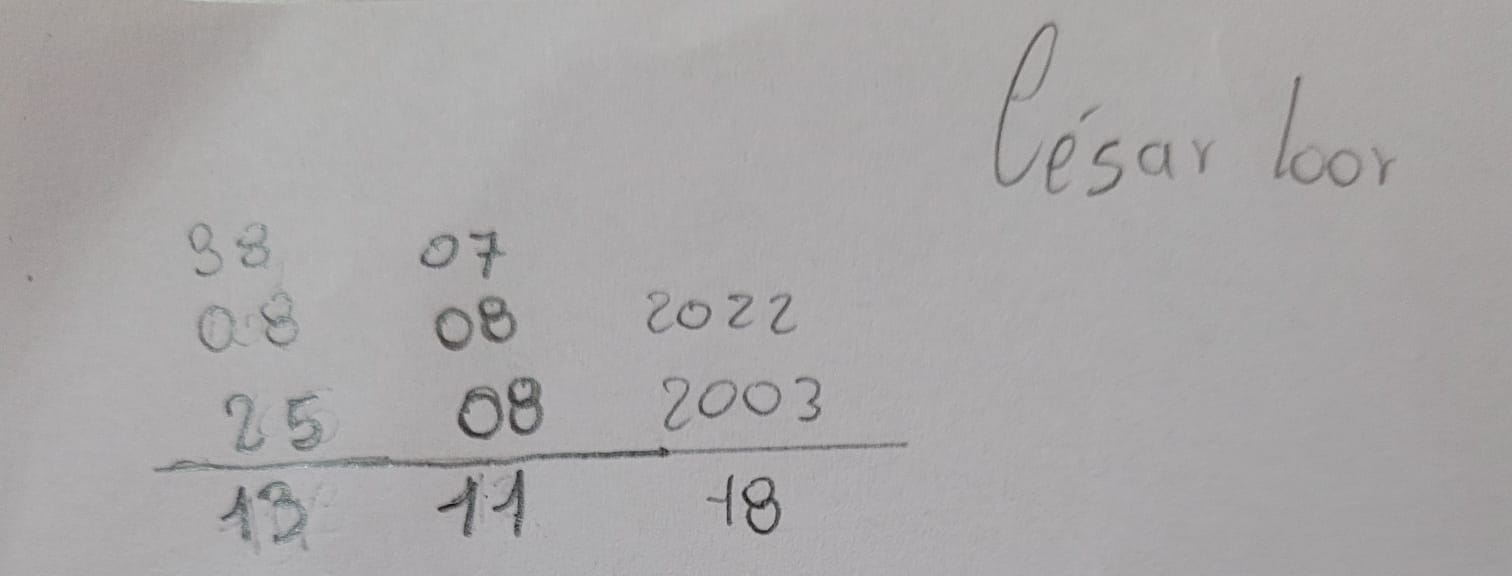 César loor
38 07
08 08 2022
25 08 2003
13 11 18